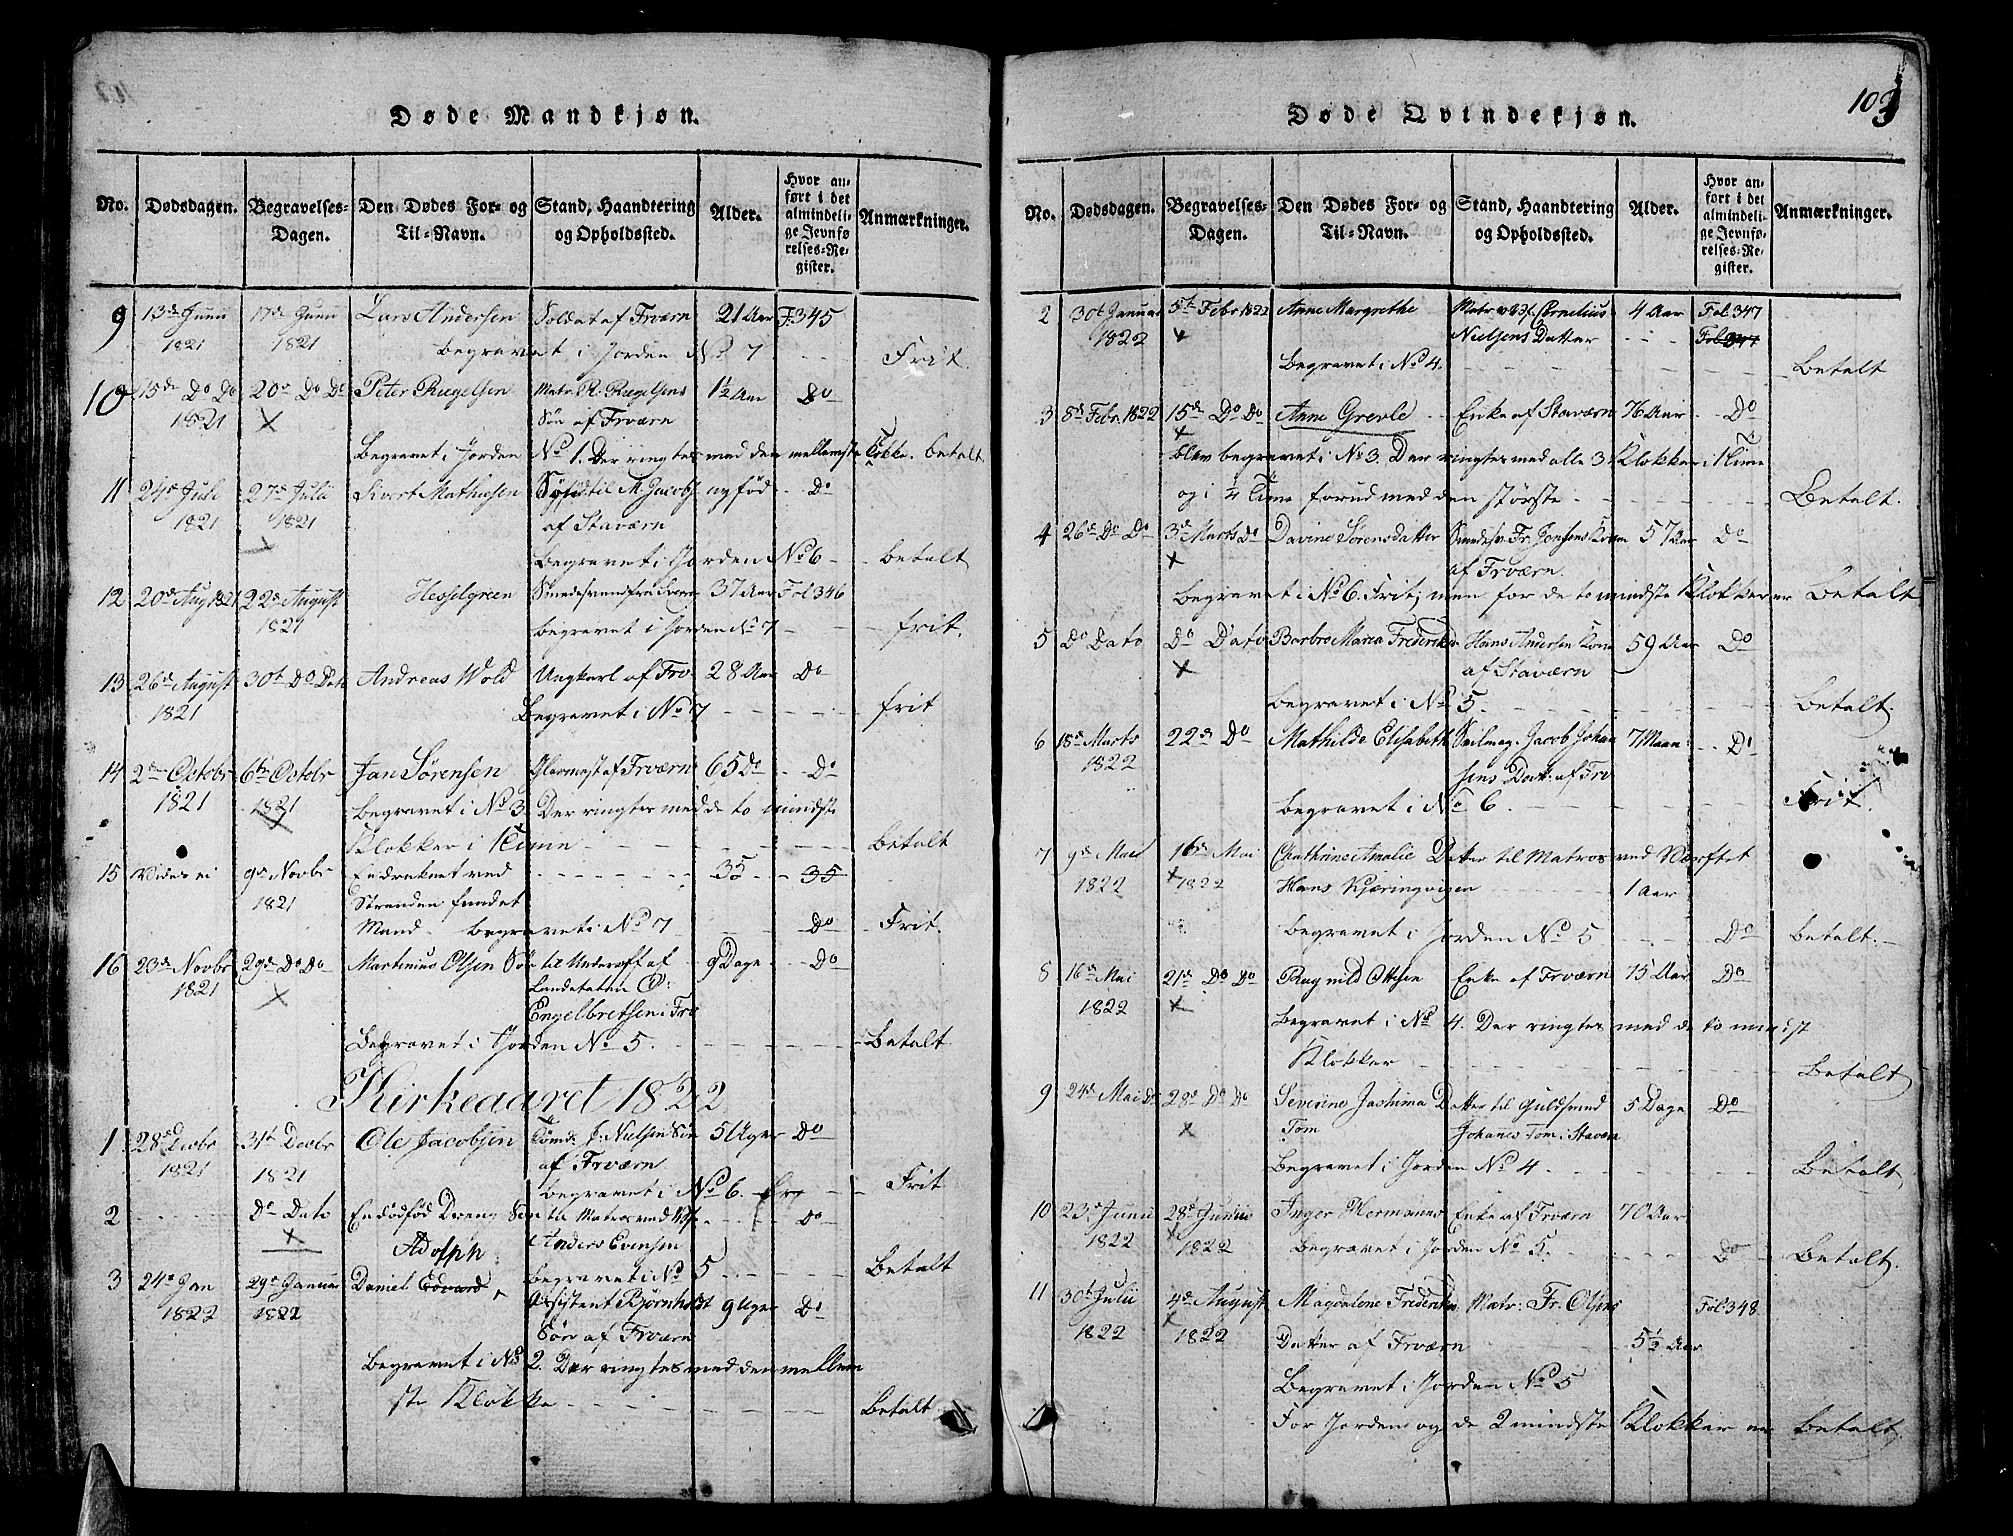 Døde Mandkjøn.
No. Dødsdagen. Begravelses-Dagen. Den Dødes For- og Til-Navn. Stand, Haandtering og Opholdssted. Alder. Hvor anført i det almindelige Jevnførelses-Register. Anmærkninger.
9 13de Junii 17de Junii Lars Andersen Soldat af Frværn 21 Aar F. 345
1821 1821 begravet i Jorden No 7 - - - Frit.
10 15de Do Do 20de Do Do Peter Rugelsen Matr. R. Rugelsens 1½ Aar Do
1821 Søn af Frværn
Begravet i Jorden No 1. Der ringtes med den mellemste Klokke. betalt
11 24de Juli 27de Julii Sivert Mathiesen Søn til M. Jacobs nyfød - - Do
1821 1821 af Staværn
Begravet i Jorden No 6 - - betalt
12 20de Aug 1821 22de August Hesselgreen Smedesvend fra 37 Aar Fol 346
1821 begravet i Jorden No 7 - - frit.
13 26de August 30t Do Dato Andreas Wold Ungkarl af Frv 28 Aar Do
1821 Begravet i No 7 - - - - - frit
14 2den Octobr 6te Octobr Jan Sørensen Glarmest af Frværn 65 Do - - Do
1821 1821 Begravet i No 3. Der ringtes med de to mindste
Klokker i 1 Time - - - - - betalt
15 Vides ei 9de Novbr En druknet ved - - - - 35 - - 35
1821 Stranden fundet
Mand - begravet i No 7 - - Do Frit.
16 23de Novbr 29de Do Do Martinius Olsen Søn til Underoff af 9 Dage - - Do
1821 Landetaten O:
Engelbretsen i Frv
Begravet i Jorden No 5. - - - - - Betalt
Kirkeaaret 1822
1 28de Decbr 31t Decbr Ole Jacobsen Tømd. J. Nielsen Søn 5 Uger Do
1821 1821 af Frværn
begravet i No 6. - - Frit
2 - - - Do Dato En dødfød Dreng Søn til Matros ved - - - Do
Anders Evensen
Adolph begravet i No 5 - - - - Betalt
3 24de Jan 29de Januar Daniel Edvard Assistent Bjørnholdt 9 Uger Do
1822 1822 Søn af Frværn
Begravet i No 2. Der ringtes med den mellem
ste Klokke - - - - - Betalt
103
Døde Qvindekjøn.
No. Dødsdagen. Begravelses-Dagen. Den Dødes For- og Til-Navn. Stand, Haandtering og Opholdssted. Alder. Hvor anført i det almindelige Jevnførelses-Register. Anmærkninger.
2 30t Januar 5te Febr 1822 Anne Margrethe Matr. v. Cornelius 4 Aar Fol 347
1822 Nielsens Datter - - - Fol 347
Begravet i No 4. - - - - - Betalt
3 8de Febr. 1822 15de Do Do Anne Grevle - - Enke af Staværn 76 Aar - - Do
blev begravet i No 3. Der ringtes med alle 3 Klokker i 1 Time
og i ¼ Time forud med den største - - - - - Betalt.
4 26de Do Do 3de Marts Do Davine Sørensdatter Smedesv. Fr. Jensens Kone 57 Aar Do
af Frværn.
Begravet i No 6. Frit; men for de to mindste Klokker er Betalt
5 Do Dato Do Dato Barbro Maria Frederikke Hans Andersen Kone 59 Aar Do
af Staværn
Begravet i No 5. - - - - - Betalt.
6 18de Marts 22de Do Mathilde Elisabeth Seilmag. Jacob Johan 7 Maan: - - Do
1822 sens Datt: af Frv
Begravet i No 6. - - - - - Frit.
7 9de Mai 16de Mai Chathrine Amalie Datter til Matros ved Værftet
1822 1822 Hans Kjæringvigen - - - 1 Aar
Begravet i Jorden No 5 - - - Do betalt. -
8 16de Mai 21de Do Do Ragnild Ottsen Enke af Frværn 75 Aar Do
1822 Begravet i No 4. Der ringtes med de to mindst
Klokker - - - - - Betalt
9 24de Mai Do 28de Do Do Severine Jachima Datter til Guldsmed 5 Dage Do
Tom Johanes Tom i Staværn
Begravet i Jorden No 4 - - - - - Betalt
10 23de Junii 28de Junii Inger Hermanns Enke af Frværn 70 Aar
1822 1822 Begravet i Jorden No 5. - - - - Do - Betalt.
11 30t Julii 4de August Magdalene Frederikke Matr: Fr. Olsens Fol 348
1822 1822 Datter af Frværn - - - 5½ Aar
Begravet i Jorden No 5
For Jorden og de 2 mindste Klokker er Betalt